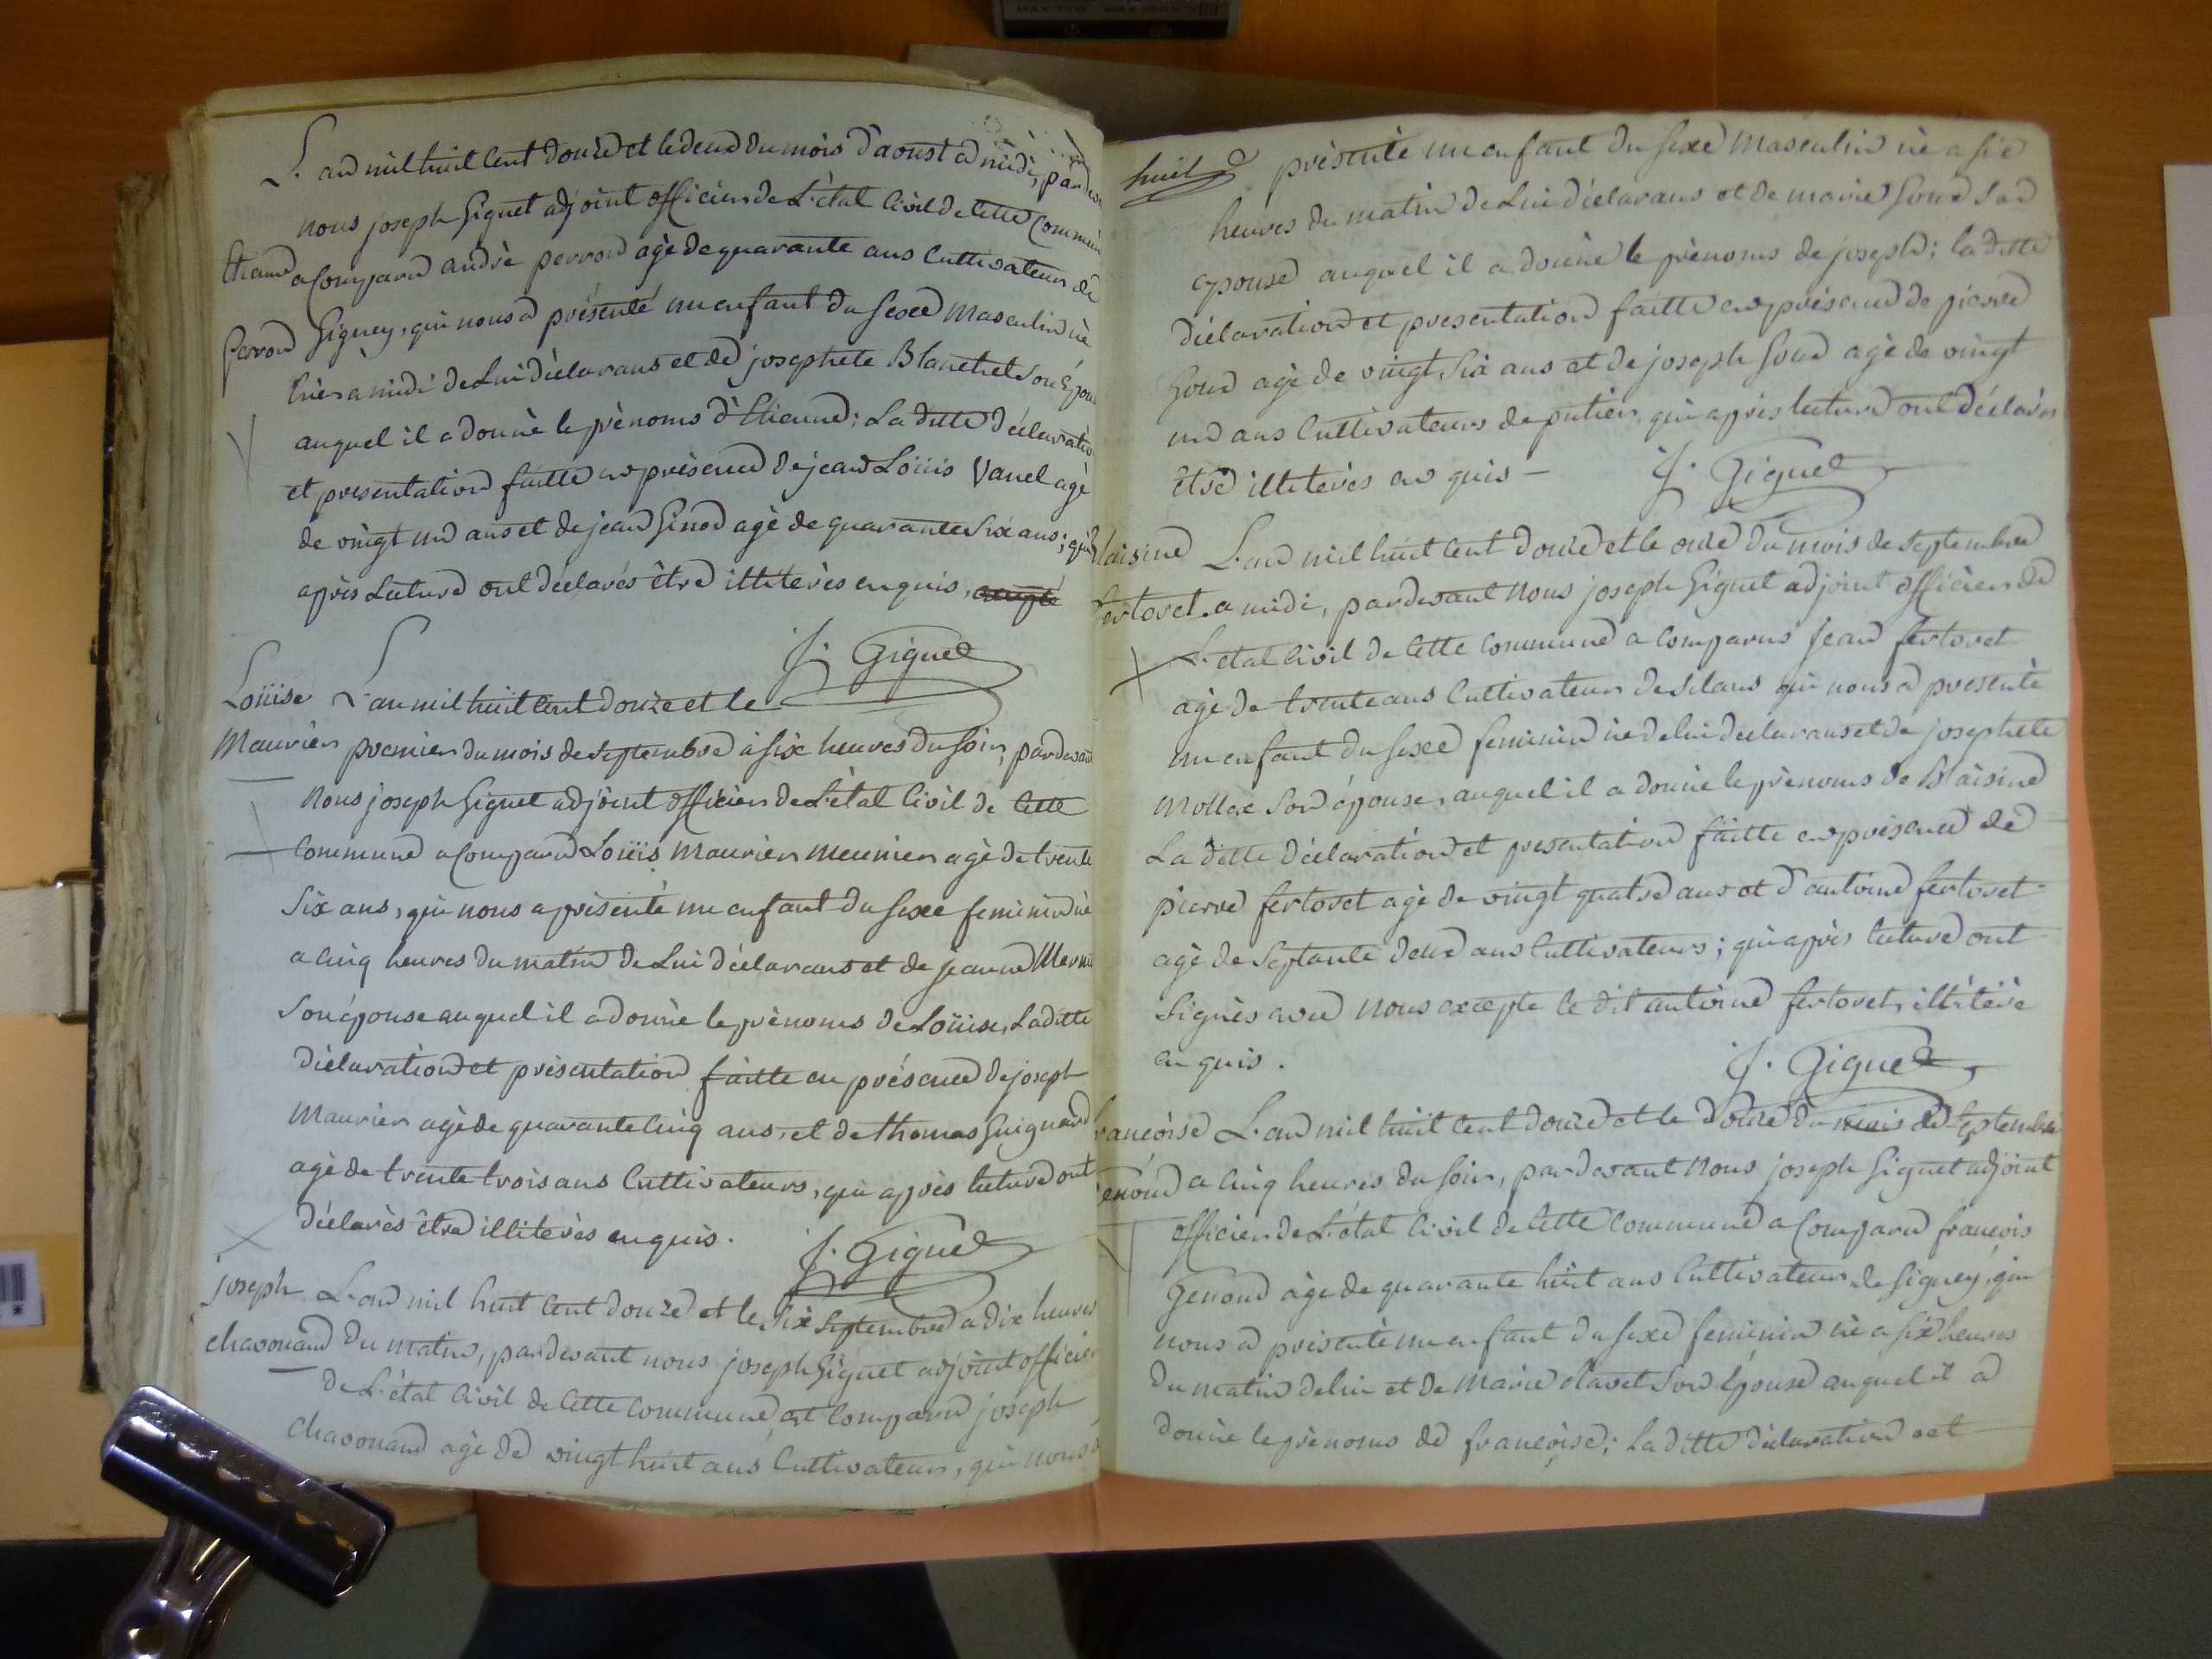 L'an mil huit cent douze et le deux du mois d'aoust a midi, pardev
nous joseph Giguet adjoint officier de L'état Civil de Cette Commun
Etienne a Comparu andrè perron agè de quarante ans Cultivateur de
perron Gigney, qui nous a présenté un enfant du sexe Masculin nè
hier a midi de Lui dèclarans et de josephete Blanchet Son Épou
auquel il a donnè le prènoms d'Etienne; La ditte dèclaratio
et presentation faitte en prèsence de jean Loüis Vanel agè
de vingt un ans et de jean Ginod agè de quarante Six ans; qui
après Lecture ont dèclarès être illitèrès enquis,
J. Giguet
Loüise L'an mil huit Cent douze et le
Maurier premier du mois de septembre à six heures du soir, pardevan
Nous joseph Giguet adjoint officier de L'ètat Civil de Cette
Commune a Comparu Loüis Maurier Meunier agè de trente
Six ans, qui nous a prèsentè un enfant du sexe feminin nè
a Cinq heures du matin de Lui dèclarans et de jeanne
Son èpouse auquel il a donnè le prènoms de Loüise, Laditte
dèclaration et prèsentation faitte en prèsence de joseph
Maurier agè de quarante Cinq ans, et de thomas Guignard
agè de trente trois ans Cultivateurs, qui après lecture ont
dèclarès être illiterès enquis.
J. Giguet
joseph L'an mil huit Cent douze et le Six Septembre a dix heures
chavouand du matin, pardevant nous joseph Giguet adjoint officier
de L'ètat Civil de Cette Commune, est Comparu joseph
Chavouand agè de vingt huit ans Cultivateur, qui nous a
huit prèsentè un enfant du sexe Masculin nè a six
heures du matin de Lui dèclarans et de marie Goud Son
epouse auquel il a donnè le prènoms de joseph; la ditte
dèclaration et presentation faitte en prèsence de pierre
Goud agè de vingt Six ans et de joseph Goud agè de vingt
un ans Cultivateurs de putier, qui après lecture ont dèclarès
être illiterès en quis —
J. Giguet
laisine L'an mil huit Cent douze et le onze du mois de septembre
fertoret a midi, pardevant Nous joseph Giguet adjoint officier de
L'ètat Civil de Cette Commune a Comparus jean fertoret
agè de trente ans Cultivateur de silans qui nous a presentè
un enfant du sexe feminin nè de lui declarans et de josephete
Mollex Son èpouse, auquel il a donnè le prènoms de Blaisine
La ditte dèclaration et presentation faitte en prèsence de
pierre fertoret agè de vingt quatre ans et d'antoine fertoret
agè de Septante deux ans Cultivateurs; qui après lecture ont
Signès avec Nous excepte le dit antoine fertoret, illitèrè
en quis.
J. Giguet
rancoise L'an mil huit Cent douze et le douze du mois de Septembre
enond a Cinq heures du soir, pardevant Nous joseph Giguet adjoint
officier de L'ètat Civil de Cette Commune a Comparu francois
Genond agè de quarante huit ans Cultivateur de Gigney, qui
nous a prèsentè un enfant du sexe feminin nè a six heures
du matin de lui et de Marie Son Épouse auquel il a
donnè le prènoms de francoise; La ditte dèclaration et